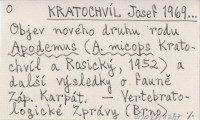 O KRATOCHVÍL Josef 1969...
Objev nového druhu rodu
Apodemus (A. micops Krato-
chvíl a Rosický, 1952) a
další výsledky o fauně
Záp. Karpat. — Vertebrato-
logické Zprávy (Brno)